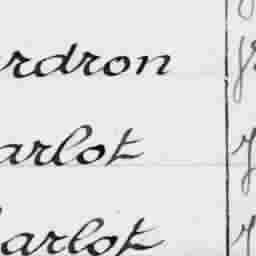 rdron
arlot
arlot